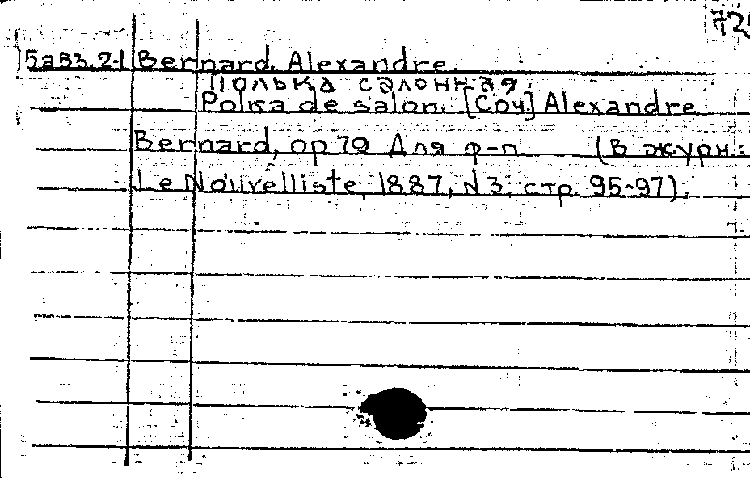 72
5аВ3.21 Bernard, Alexandre.
Полька салонная.
Polka de salon. [Соч] Alexandre
Bernard, op 79 Для ф-п (В журн:
Le Nouvelliste, 1887, N 3, стр. 95-97).